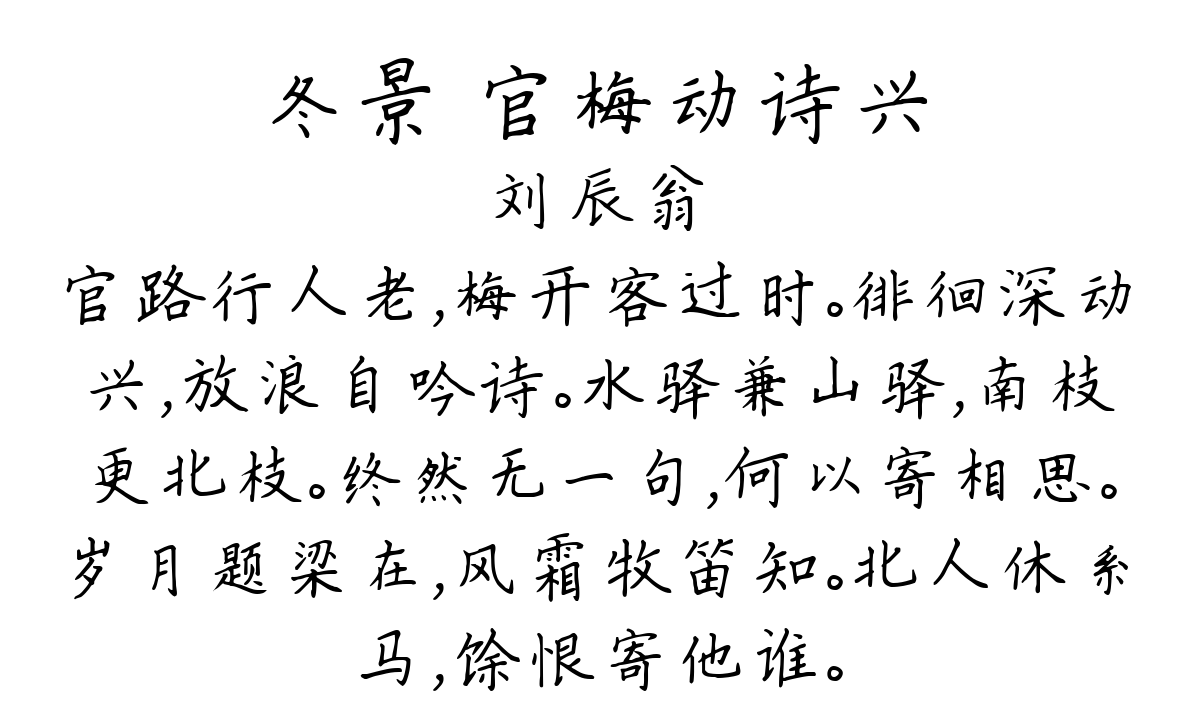 冬景 官梅动诗兴
刘辰翁
官路行人老,梅开客过时。徘徊深动
兴,放浪自吟诗。水驿兼山驿,南枝
更北枝。终然无一句,何以寄相思。
岁月题梁在,风霜牧笛知。北人休系
马,馀恨寄他谁。